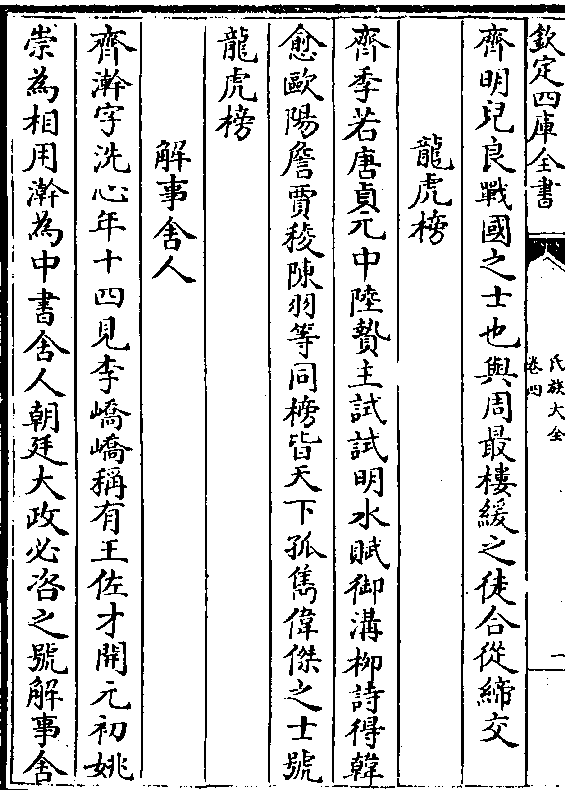 欽定四庫全書
氏族大全
卷四
一
齊明兒良戰國之士也與周最樓緩之徒合從締交
龍虎榜
齊季若唐貞元中陸贄主試試明水賦御溝柳詩得韓
愈歐陽詹賈稜陳羽等同榜皆天下孤雋偉傑之士號
龍虎榜
解事舍人
齊澣字洗心年十四見李嶠嶠稱有王佐才開元初姚
崇為相用澣為中書舍人朝廷大政必咨之號解事舍